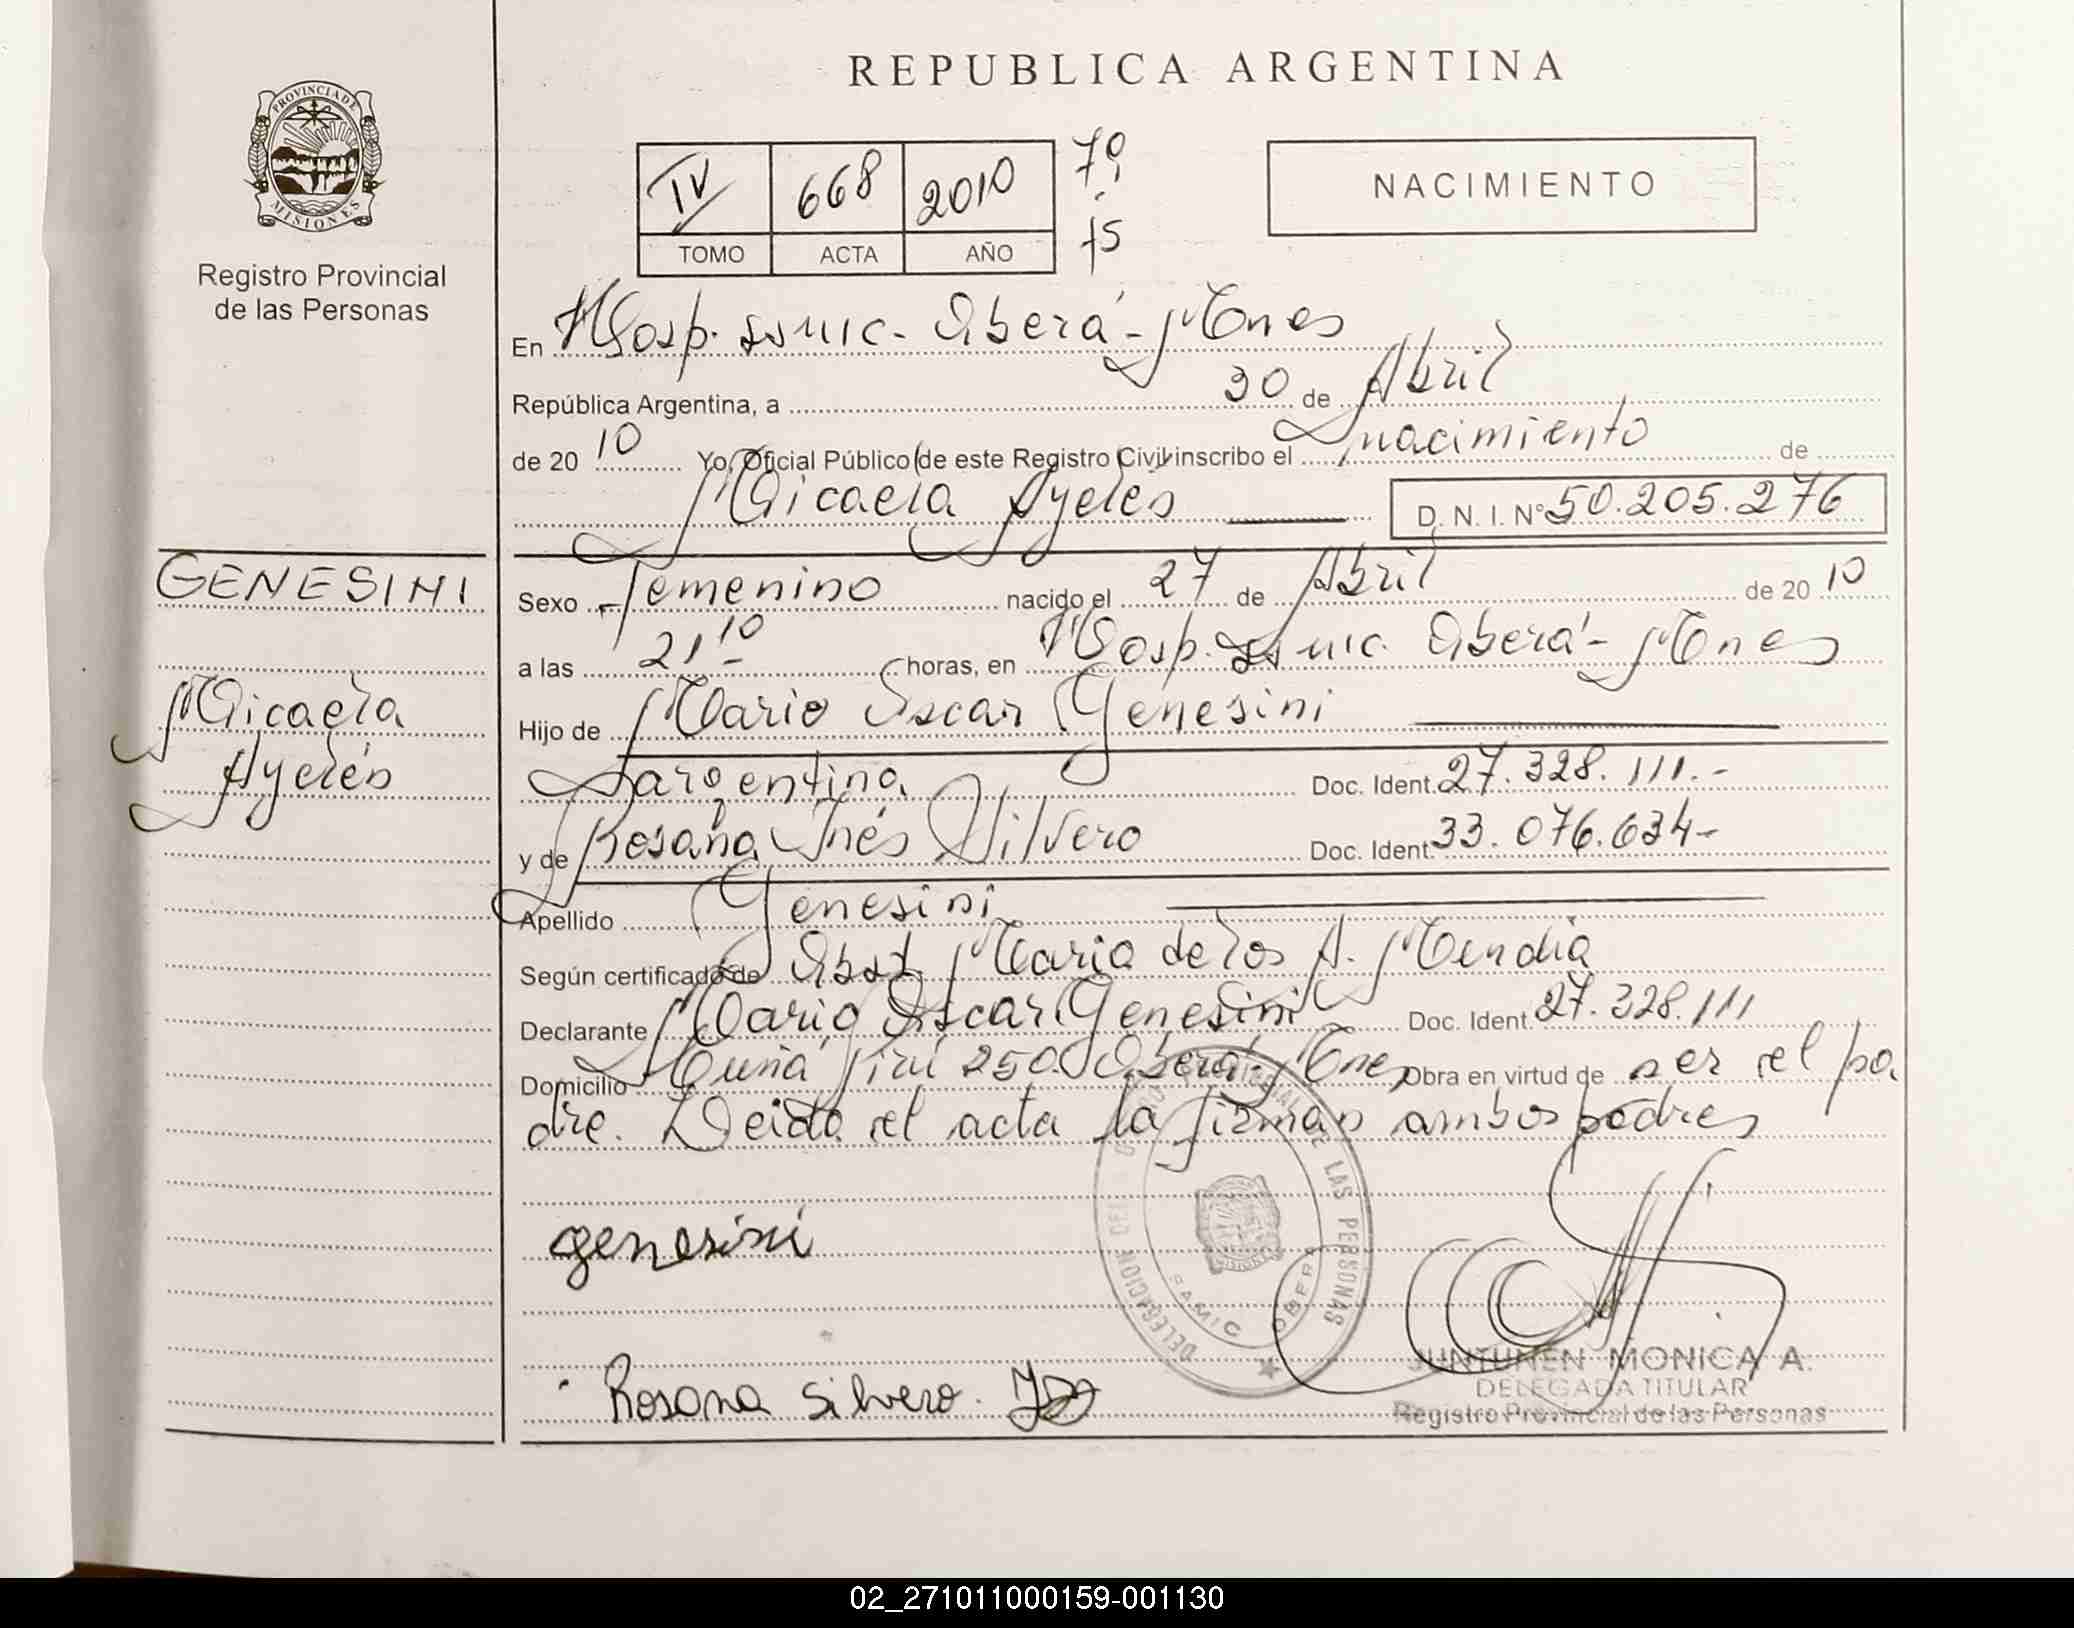 REPUBLICA ARGENTINA
PROVINCIA DE
MISIONES
Registro Provincial
de las Personas
IV 668 2010
TOMO ACTA AÑO
NACIMIENTO
En Hosp. Samic. Oberá - Mnes
República Argentina, a 30 de Abril
de 20 10 Yo, Oficial Público de este Registro Civil inscribo el nacimiento de
Micaela Aylén D. N. I. Nº 50.205.276
GENESINI
Micaela
Aylén
Sexo Femenino nacido el 27 de Abril de 20 10
a las 21 10 horas, en Hosp. Samic. Oberá - Mnes
Hijo de Mario Oscar Genesini
argentina Doc. Ident. 27.328.111.-
y de Rosana Inés Silvero Doc. Ident. 33.076.634-
Apellido Genesini
Según certificado de Obst. Maria de los A. Mendia
Declarante Mario Oscar Genesini Doc. Ident. 27.328.111
Domicilio 250. Oberá - Mnes Obra en virtud de ser el pa
dre. Leida el acta la firman ambos padres
genesini
Rosana Silvero.
DELEGACION DEL REGISTRO PROVINCIAL DE LAS PERSONAS
SAMIC OBERA
JUNTUNEN MONICA A.
DELEGADA TITULAR
Registro Provincial de las Personas
02_271011000159-001130